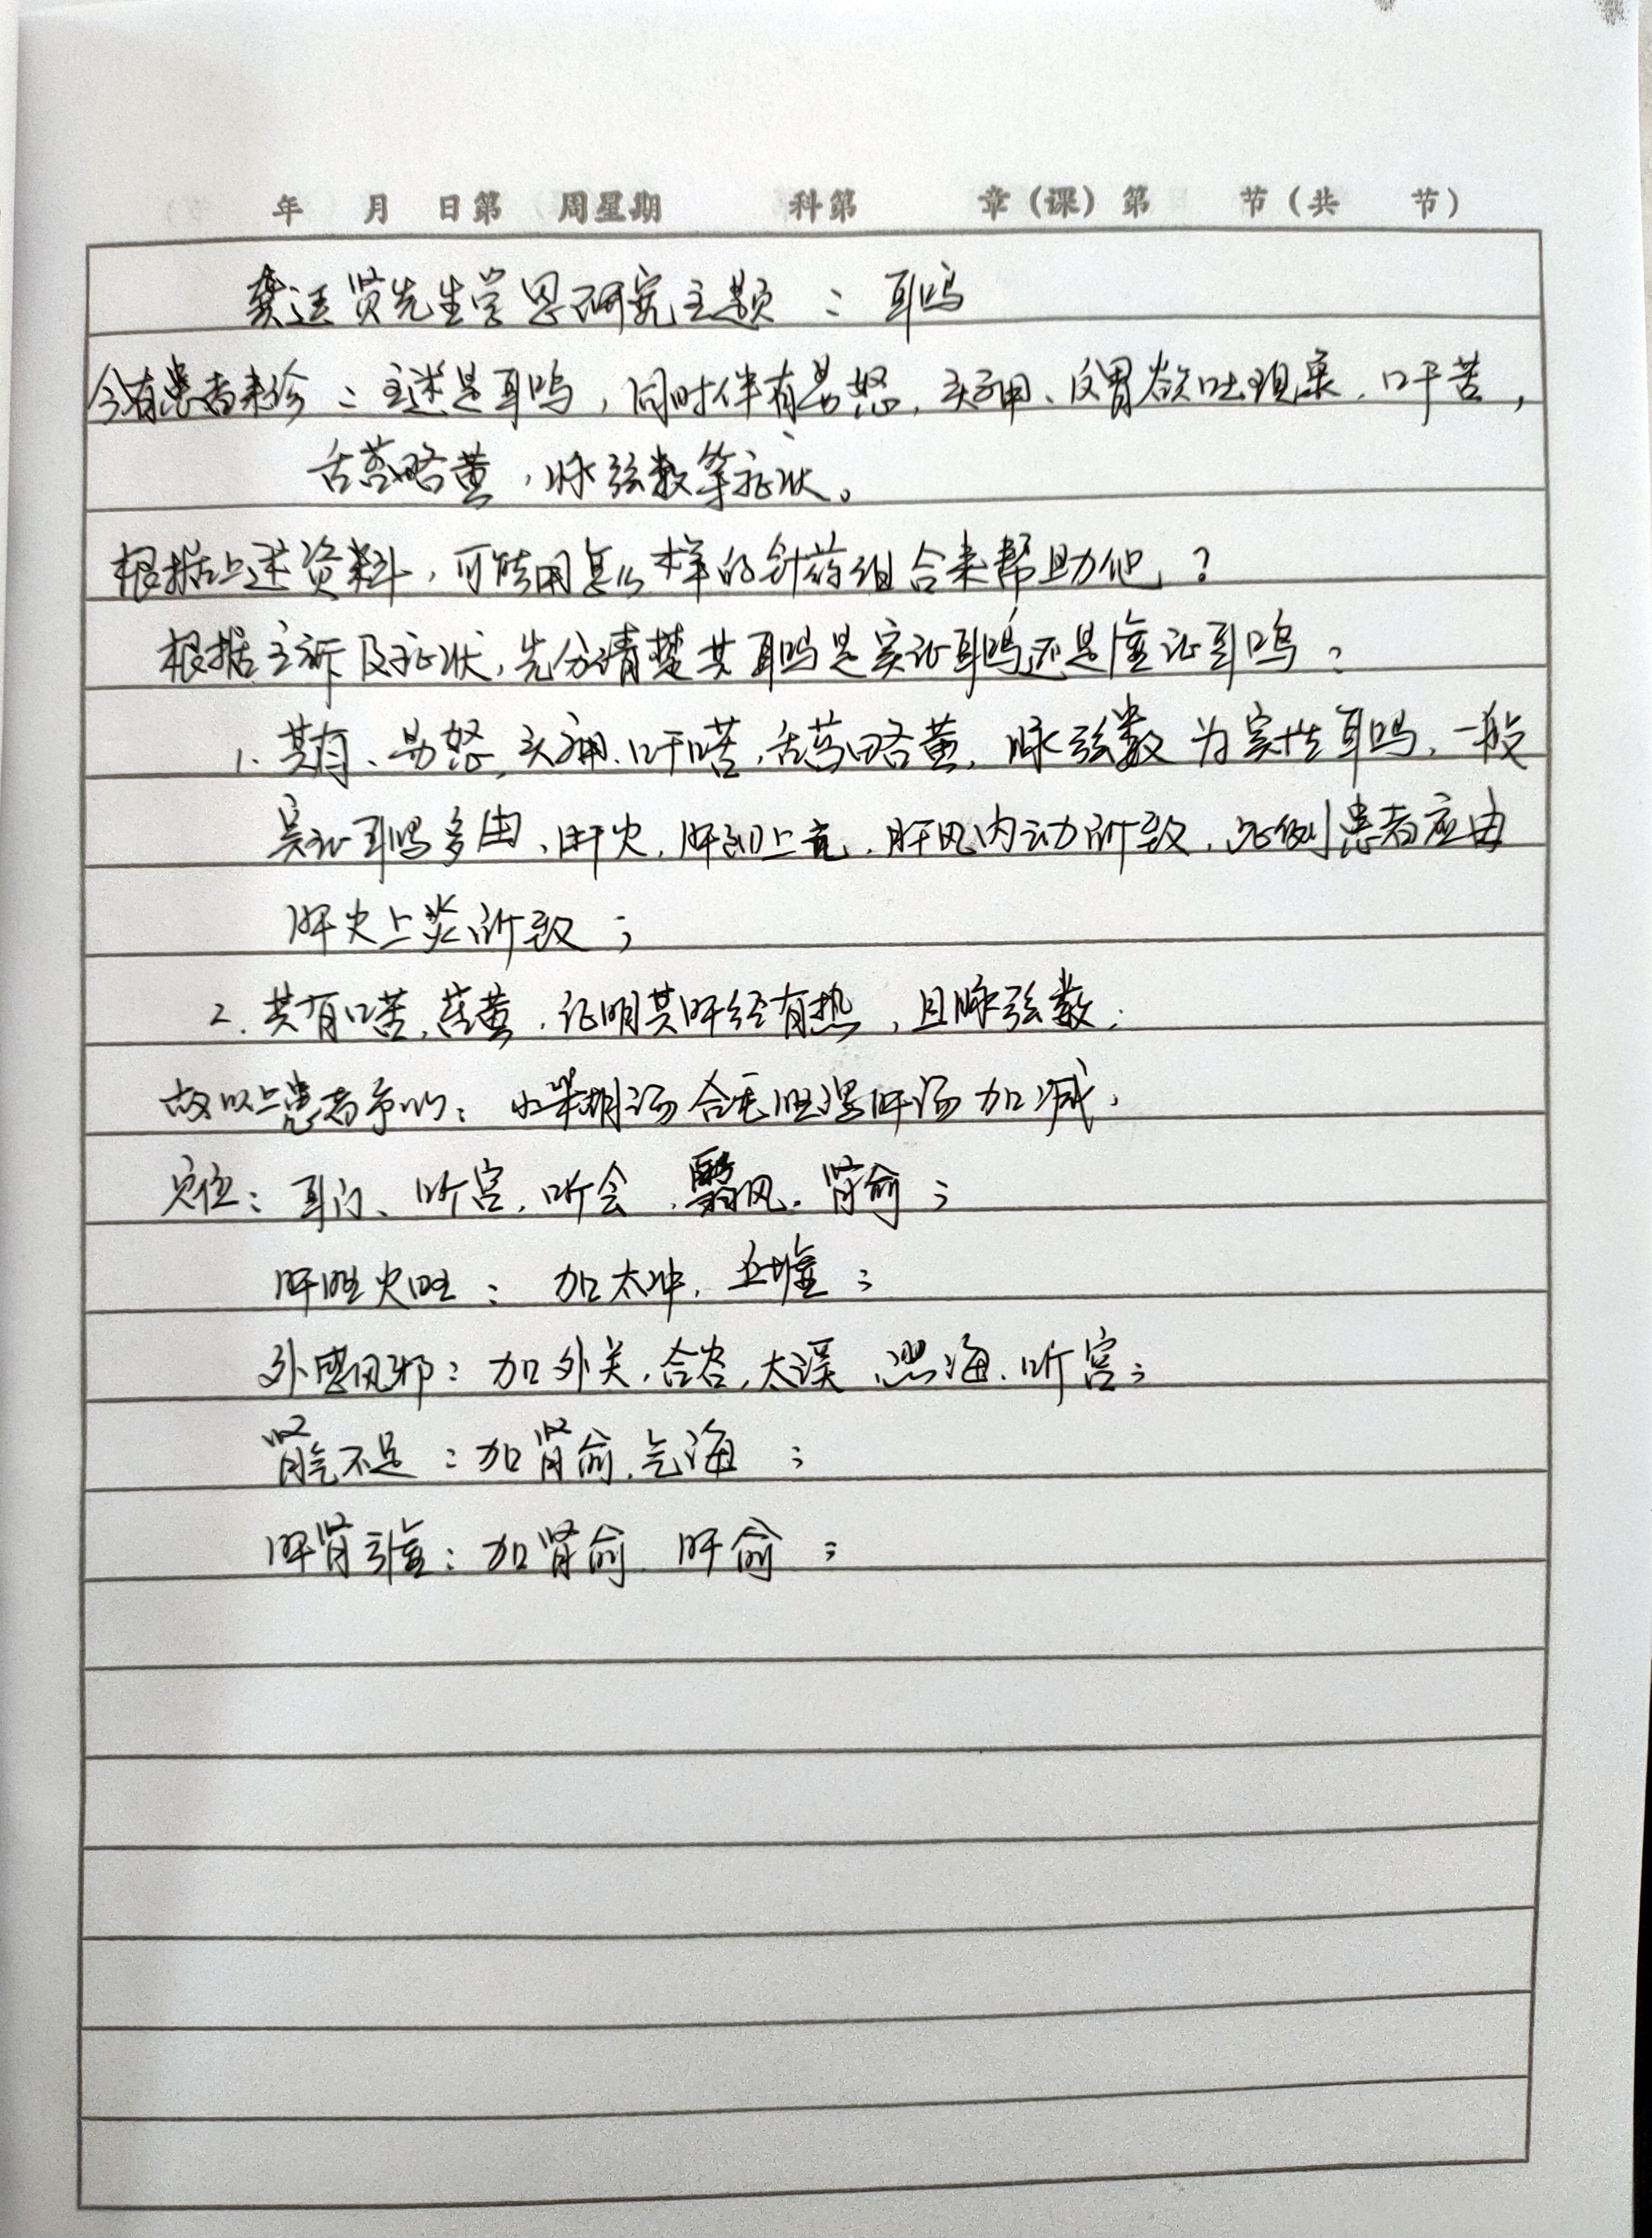 年 月 日第 周星期 科第 章（课）第 节（共 节）
龚廷贤先生学思研究主题：耳鸣
今有患者来诊：主述是耳鸣，同时伴有易怒，头痛、反胃欲吐现象，口干苦，
舌苔略黄，脉弦数等症状。
根据上述资料，可能用怎么样的针药组合来帮助他？
根据主诉及症状，先分清楚其耳鸣是实证耳鸣还是虚证耳鸣？
1. 其有、易怒，头痛、口干苦，舌苔略黄，脉弦数为实性耳鸣，一般
实证耳鸣多由、肝火，肝阳上亢，肝风内动所致，此例患者应由
肝火上炎所致；
2. 其有口苦，苔黄，证明其肝经有热，且脉弦数；
故以上患者予以：小柴胡汤合龙胆泻肝汤加减，
穴位：耳门、听宫，听会，翳风，肾俞；
肝胆火旺：加太冲，丘墟；
外感风邪：加外关，合谷，太溪，照海，听宫；
肾气不足：加肾俞，气海；
肝肾亏虚：加肾俞，肝俞；